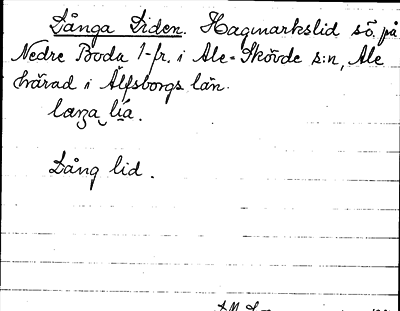 Långa Liden. Hagmarkslid sö. på
Nedre Boda 1-fr. i Ale-Skövde s:n, Ale
härad i Älfsborgs län.
laŋa lia.
Lång lid.